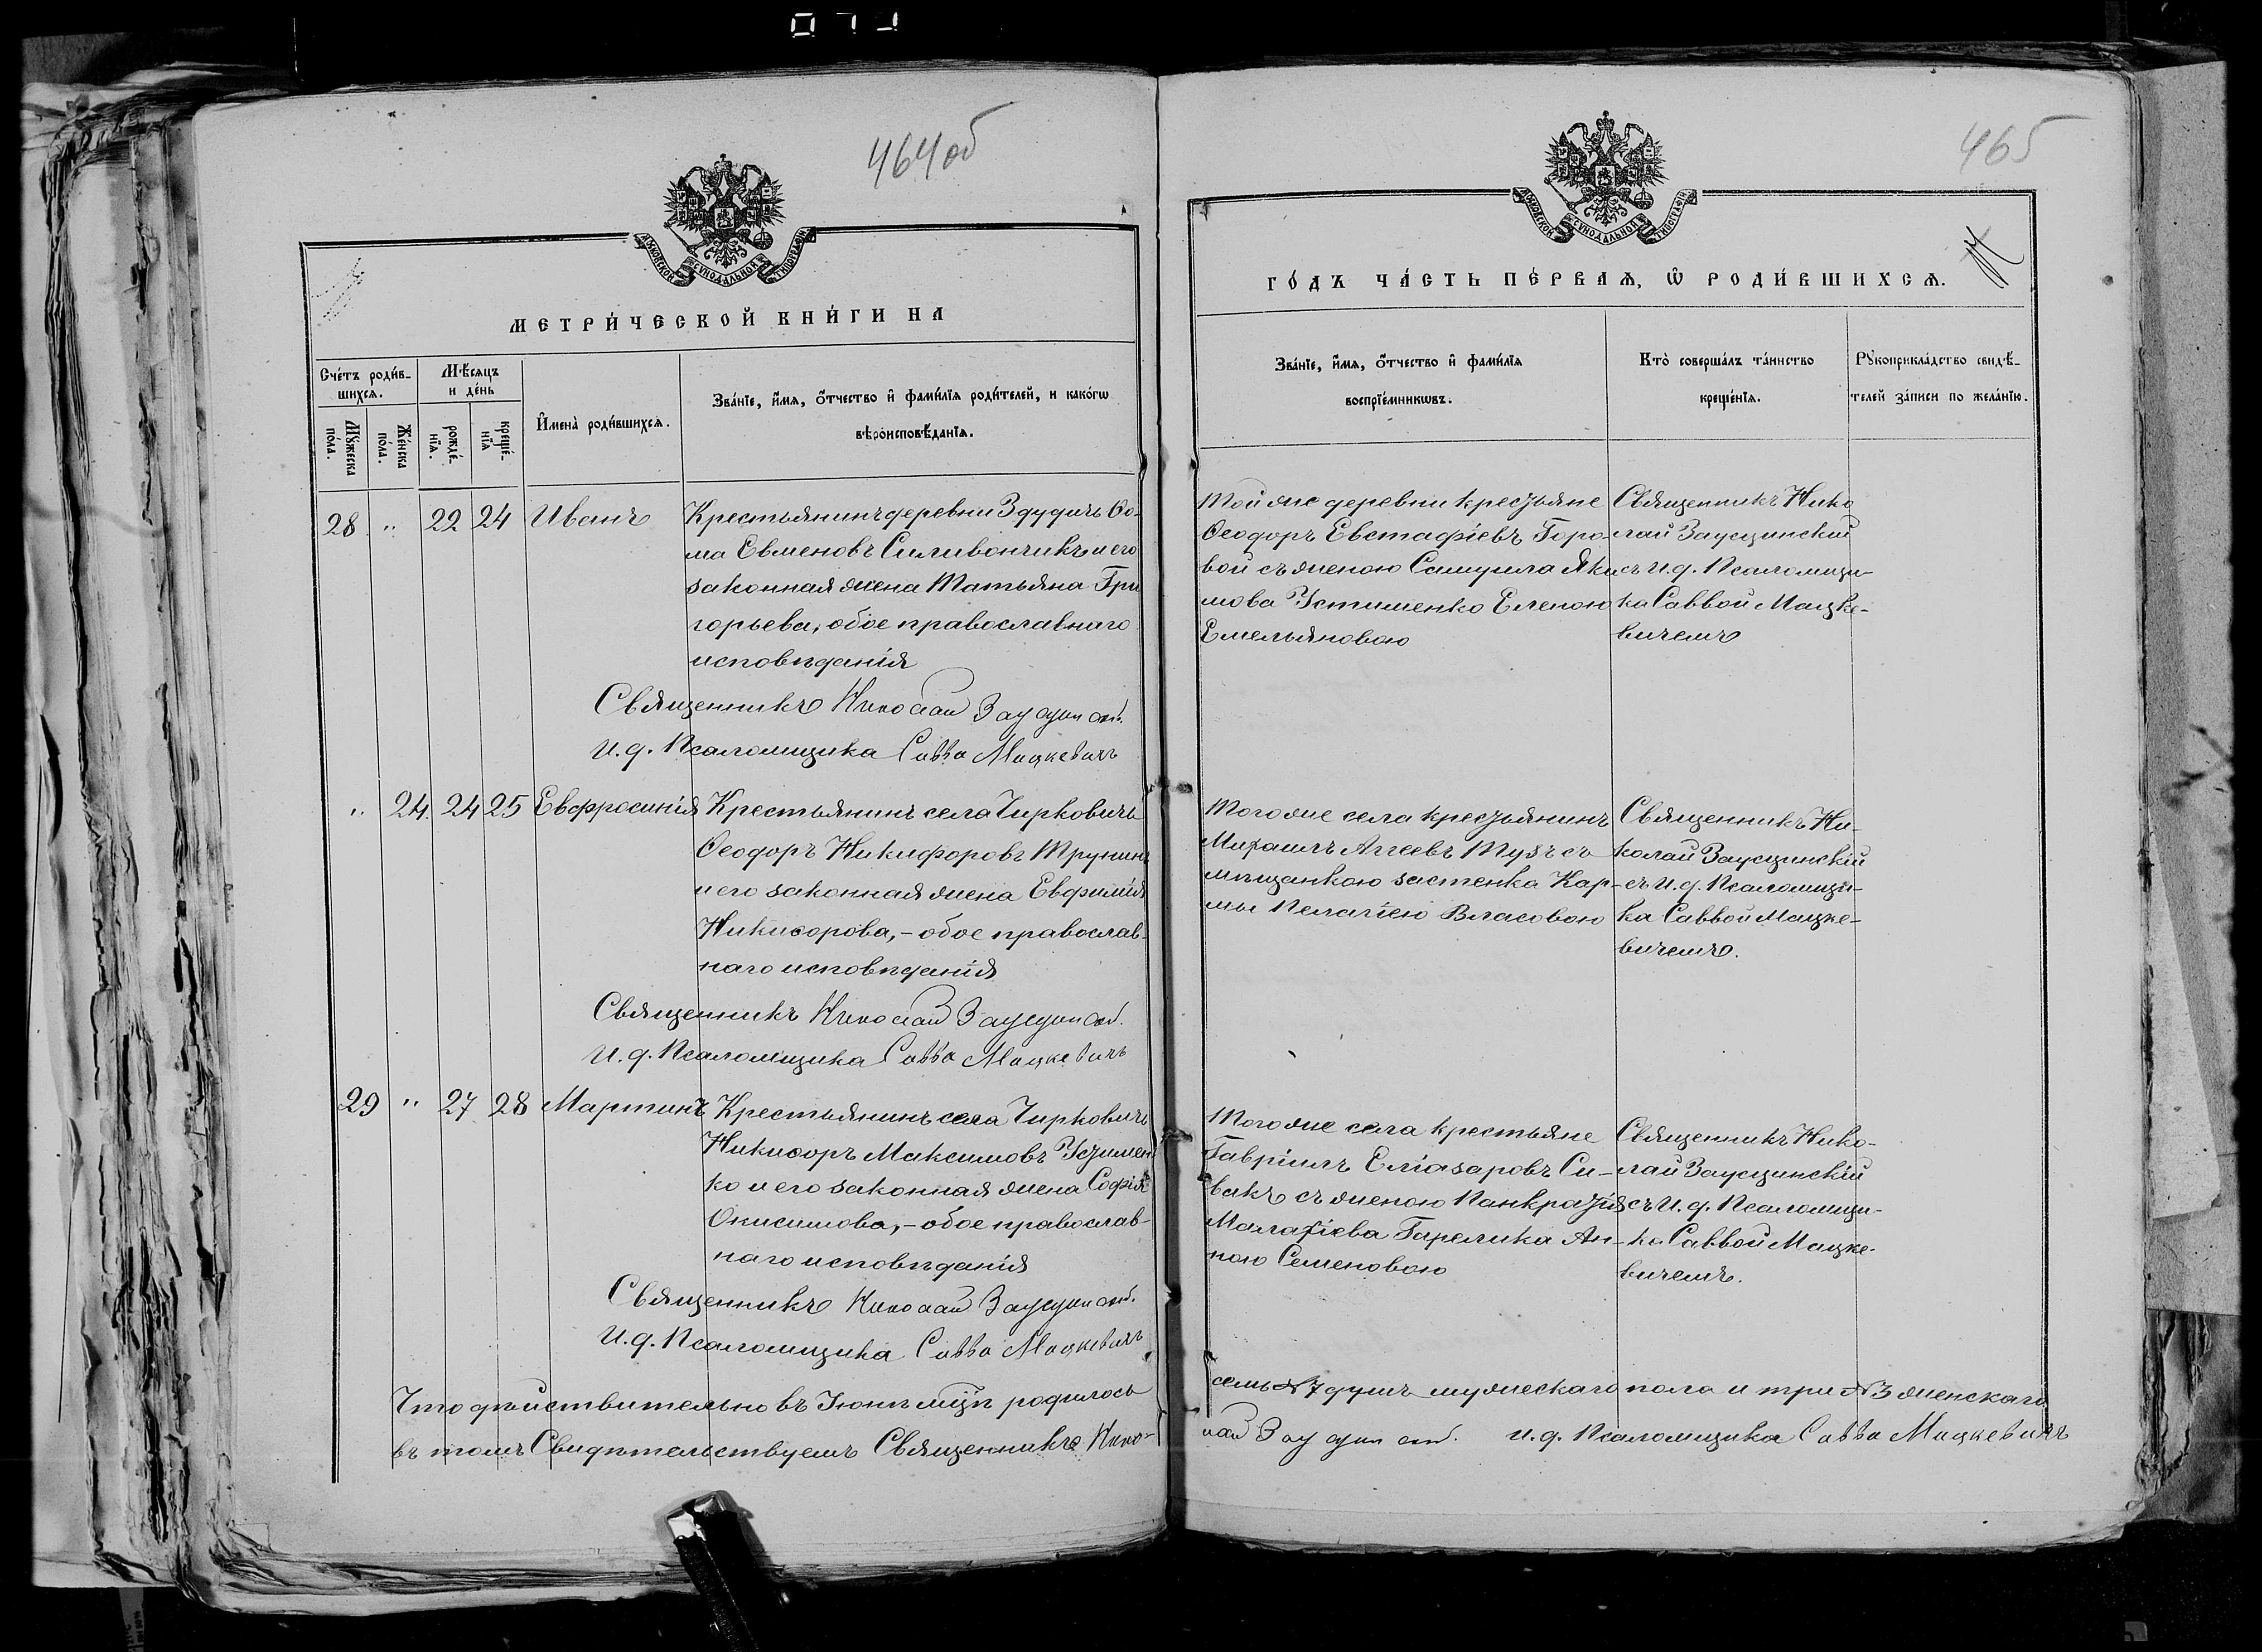 464об
МОСКОВСКОЙ СѴНОДАЛЬНОЙ ТИПОГРАФІИ
МЕТРИ́ЧЕСКОЙ КНИ́ГИ НА
Сче́тъ роди́в-
шихсѧ.
Мѣ́сяцъ
и де́нь
И҆мена̀ роди́вшихсѧ.
Зва́нїе, и҆́мѧ, ѻ҆́тчество и҆ фами́лїѧ роди́телей, и како́гѡ
вѣроисповѣ́данїѧ.
Мꙋ́жеска
по́ла.
Же́нска
по́ла.
рожде́-
нїѧ.
креще́-
нїѧ
28 " 22 24 Иванъ Крестьянинъ деревни Здудичъ Ѳо-
ма Евменовъ Силивончикъ и его
законная жена Татьяна Гри
горьева, обое православнаго
исповѣданія
Священникъ Николай Заусцинскій.
И. д. Псаломщика Савва Мацкевичъ
" 24 24 25 Евфросинія Крестьянинъ села Чирковичъ
Ѳеодоръ Никифоровъ Трунинъ
и его законная жена Евфимія
Никифорова, - обое православ-
наго исповѣданія
Священникъ Николай Заусцинскій.
И. д. Псаломщика Савва Мацкевичъ
29 " 27 28 Мартинъ Крестьянинъ села Чирковичъ
Никифоръ Максимовъ Устимен
ко и его законная жена Софія
Онисимова, - обое православ-
наго исповѣданія
Священникъ Николай Заусцинскій.
И. д. Псаломщика Савва Мацкевичъ
Что дѣйствительно въ Іюнѣ мцѣ родилось
въ томъ Свидѣтельствуемъ Священникъ Нико-
465
МОСКОВСКОЙ СѴНОДАЛЬНОЙ ТИПОГРАФІИ
ГО́ДЪ ЧА́СТЬ ПЕ́РВАѦ, Ѡ҆ РОДИ́ВШИХСѦ.
Зва́нїе, и҆́мѧ, ѻ҆́тчество и҆ фами́лїѧ
воспрїе́мникѡвъ.
Кто̀ соверша́лъ та́инство
креще́нїѧ.
Рꙋкоприкла́дство свидѣ́-
телей за́писи по жела́нїю.
Той же деревни крестьяне
Ѳеодоръ Евстафіевъ Горо-
вой съ женою Самуила Яки
мова Устименко Еленою
Емельяновою
Священникъ Нико
лай Заусцинскій
съ И. д. Псаломщи-
ка Саввой Мацке-
вичемъ
Того же села крестьянинъ
Михаилъ Аггеевъ Тузъ съ
мѣщанкою застенка Кар-
мы Пелагіею Власовою
Священникъ Ни-
колай Заусцинскій
съ И. д. Псаломщи-
ка Саввой Мацке-
вичемъ.
Того же села крестьяне
Гавріилъ Еліазаровъ Си-
вакъ съ женою Панкратія
Малахіева Гарелика Ан-
ною Семеновою
Священникъ Нико-
лай Заусцинскій
съ И. д. Псаломщи-
ка Саввой Мацке-
вичемъ.
семь №7 душъ мужескаго пола и три №3 женскаго
лай Заусцинскій. И. д. Псаломщика Савва Мацкевичъ